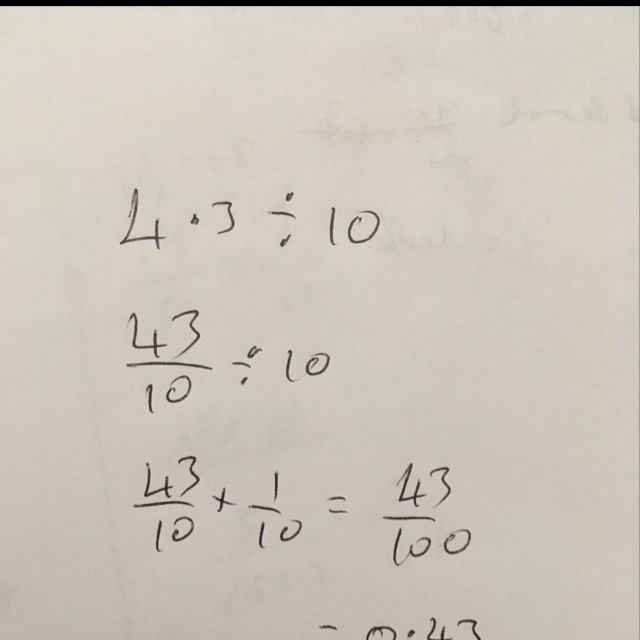 4·3 ÷ 10
43/10 ÷ 10
43/10 × 1/10 = 43/100
= 0·43